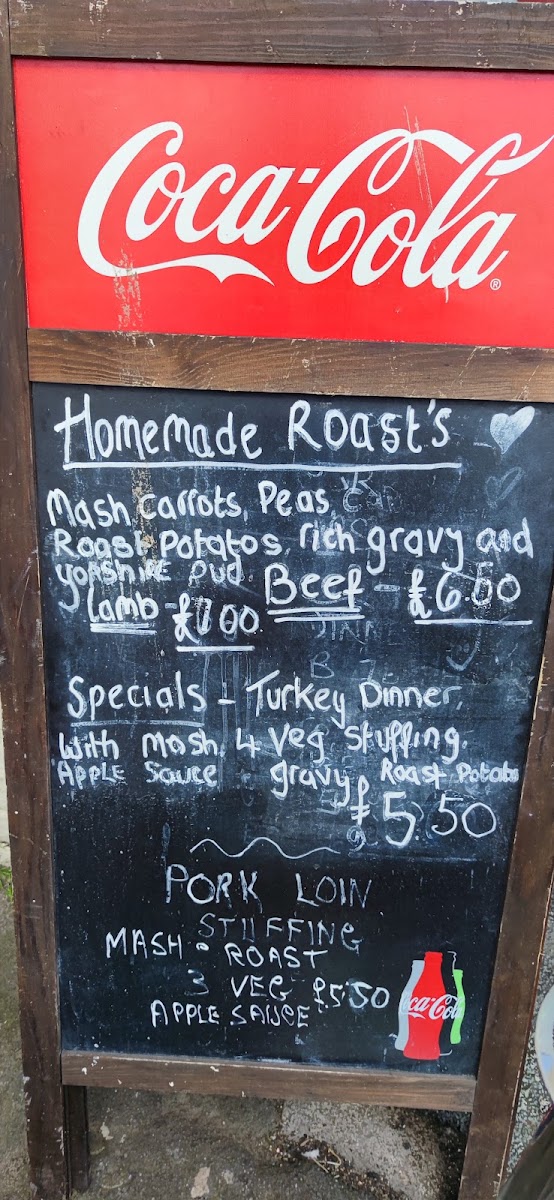 Coca-Cola®
Homemade Roast's
Mash Carrots, Peas,
Roast Potatos, rich gravy and
yorshire pud. Beef - £6.00
Lamb £7.00
Specials - Turkey Dinner,
with mash, 4 veg stuffing.
Apple Sauce gravy Roast Potato
£5.50
PORK LOIN
STUFFING
MASH • ROAST
3 VEG £5.50
APPLE SAUCE
Coca-Cola